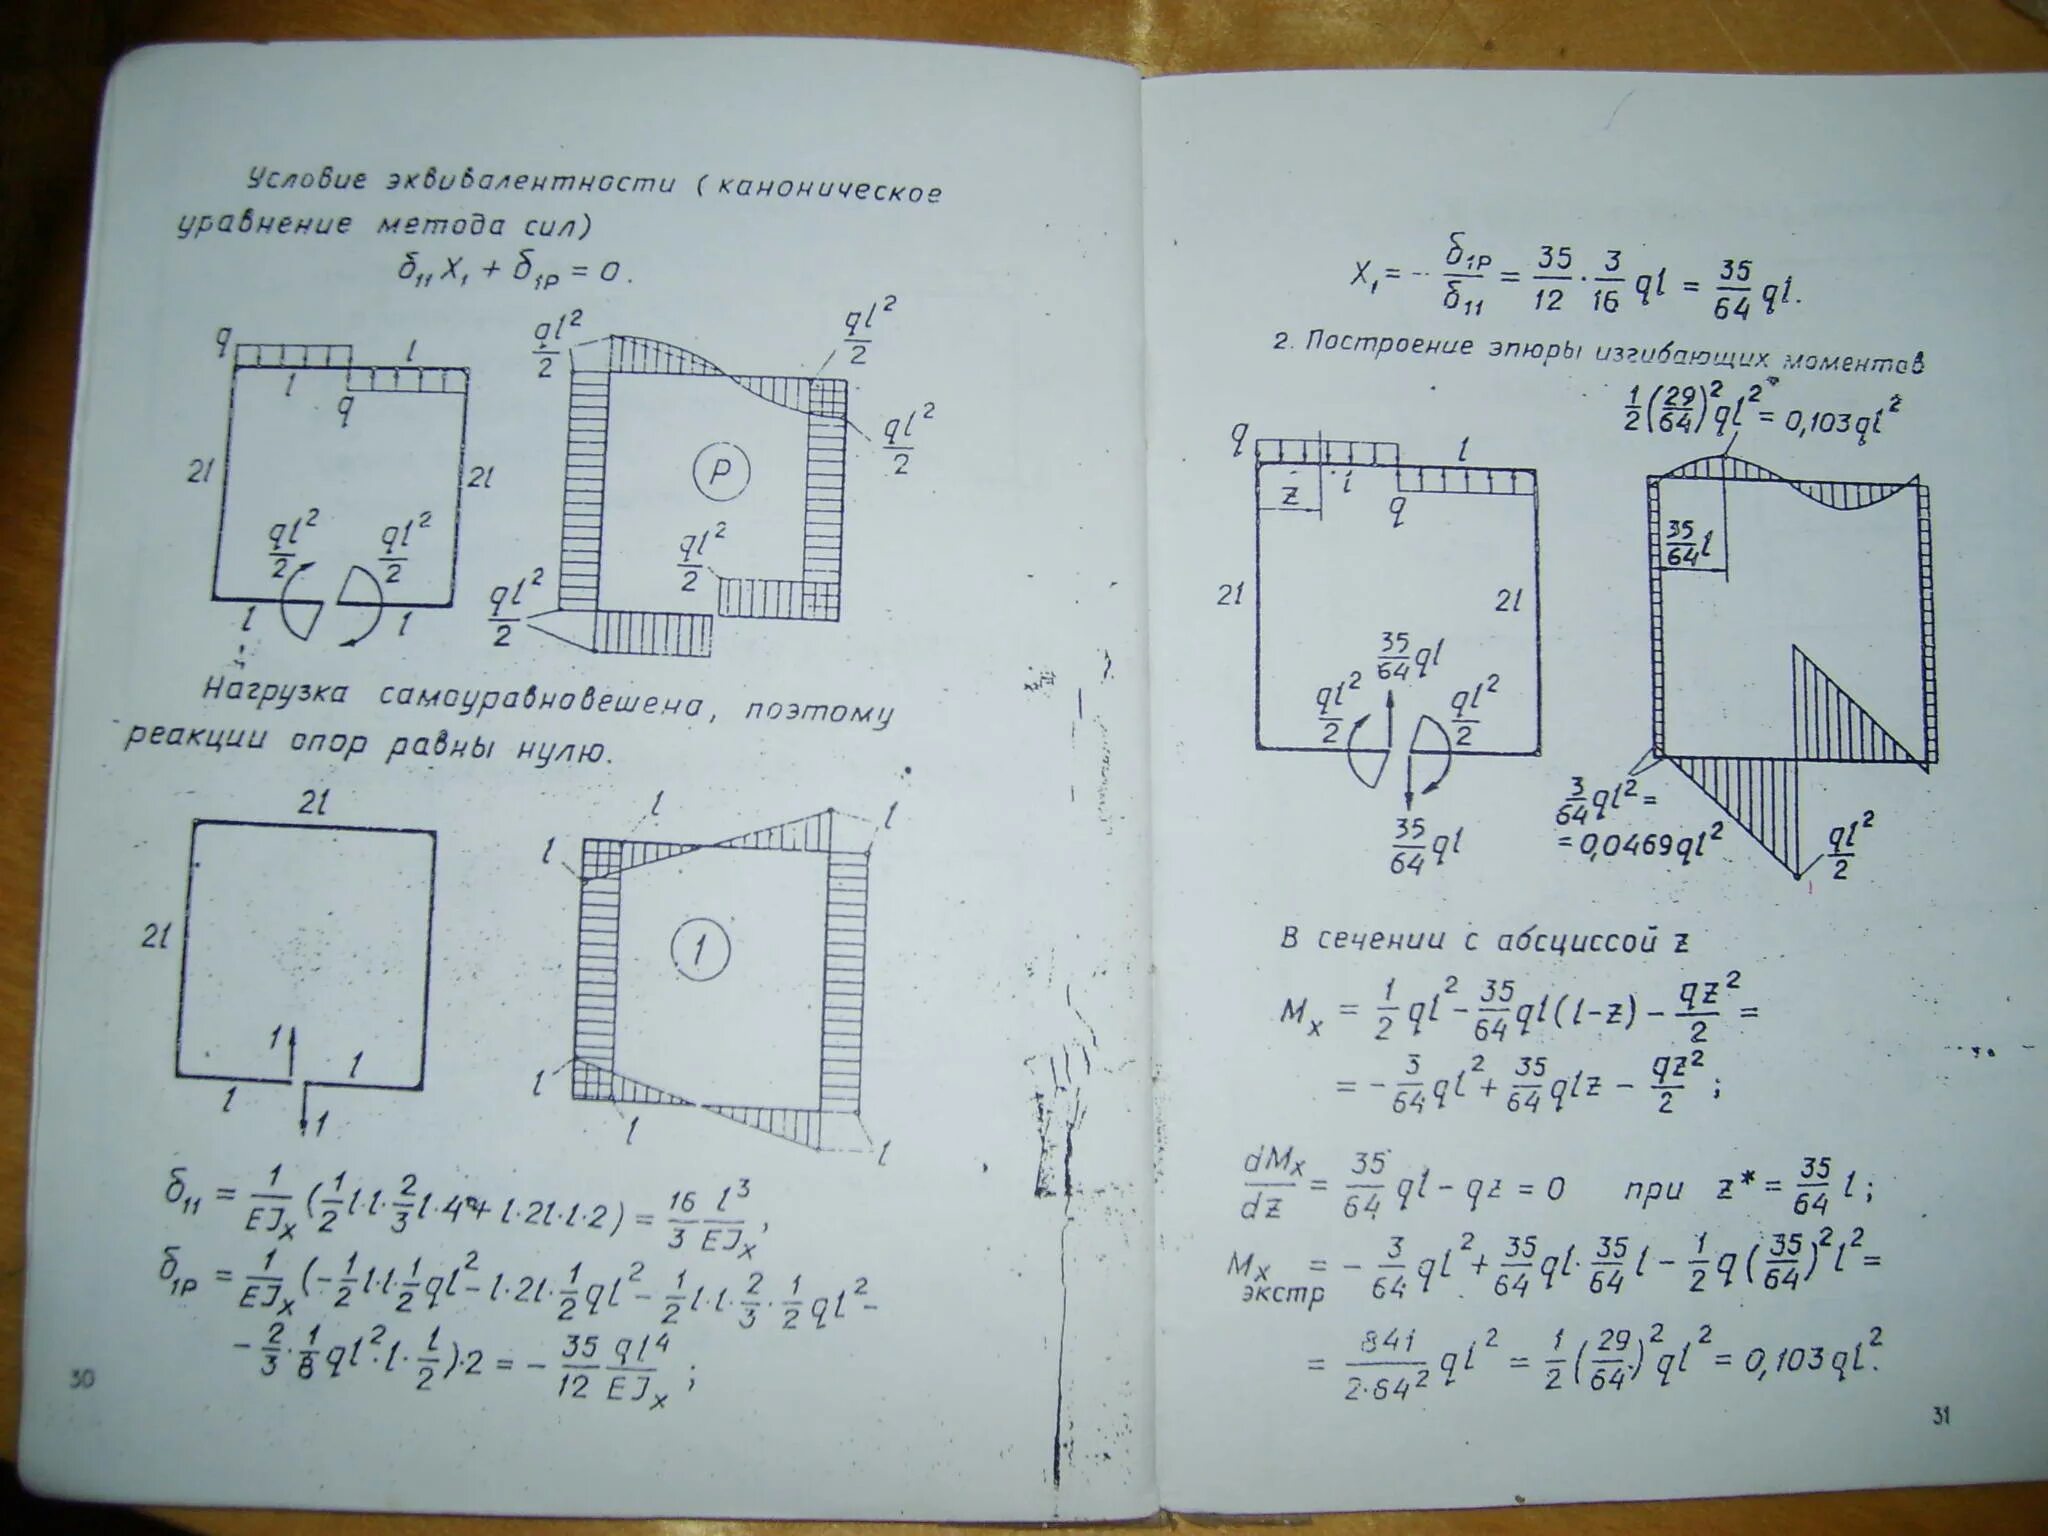 Условие эквивалентности (каноническое
уравнение метода сил)
δ₁₁ X₁ + δ₁P = 0.
q l l q 2l 2l ql²/2 ql²/2 l l
ql²/2 ql²/2 ql²/2 P ql²/2 ql²/2
Нагрузка самоуравновешена, поэтому
реакции опор равны нулю.
2l 2l 1 l l 1
l l l 1 l l l
δ₁₁ = 1/EJₓ (1/2 l·l·2/3 l·4 + l·2l·l·2) = 16/3 l³/EJₓ,
δ₁P = 1/EJₓ (-1/2 l·l·1/2 ql² - l·2l·1/2 ql² - 1/2 l·l·2/3·1/2 ql² -
- 2/3·1/8 ql²·l·l/2)·2 = - 35/12 ql⁴/EJₓ ;
30
X₁ = - δ₁P/δ₁₁ = 35/12 · 3/16 ql = 35/64 ql.
2. Построение эпюры изгибающих моментов
1/2 (29/64)² ql² = 0,103 ql²
q l z l q 2l 2l 35/64 ql ql²/2 ql²/2 35/64 ql
35/64 l
3/64 ql² =
= 0,0469 ql²
ql²/2
В сечении с абсциссой z
Mₓ = 1/2 ql² - 35/64 ql (l-z) - qz²/2 =
= - 3/64 ql² + 35/64 qlz - qz²/2 ;
dMₓ/dz = 35/64 ql - qz = 0 при z* = 35/64 l ;
Mₓ экстр = - 3/64 ql² + 35/64 ql · 35/64 l - 1/2 q (35/64)² l² =
= 841/2·64² ql² = 1/2 (29/64)² ql² = 0,103 ql².
31